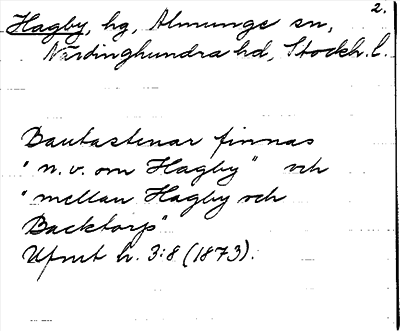 2.
Hagby, hg, Almunge sn,
Närdinghundra hd, Stockh. l.
Bautastenar finnas
"n.v. om Hagby" och
"mellan Hagby och
Backtorp"
Upmt h. 3:8 (1873).